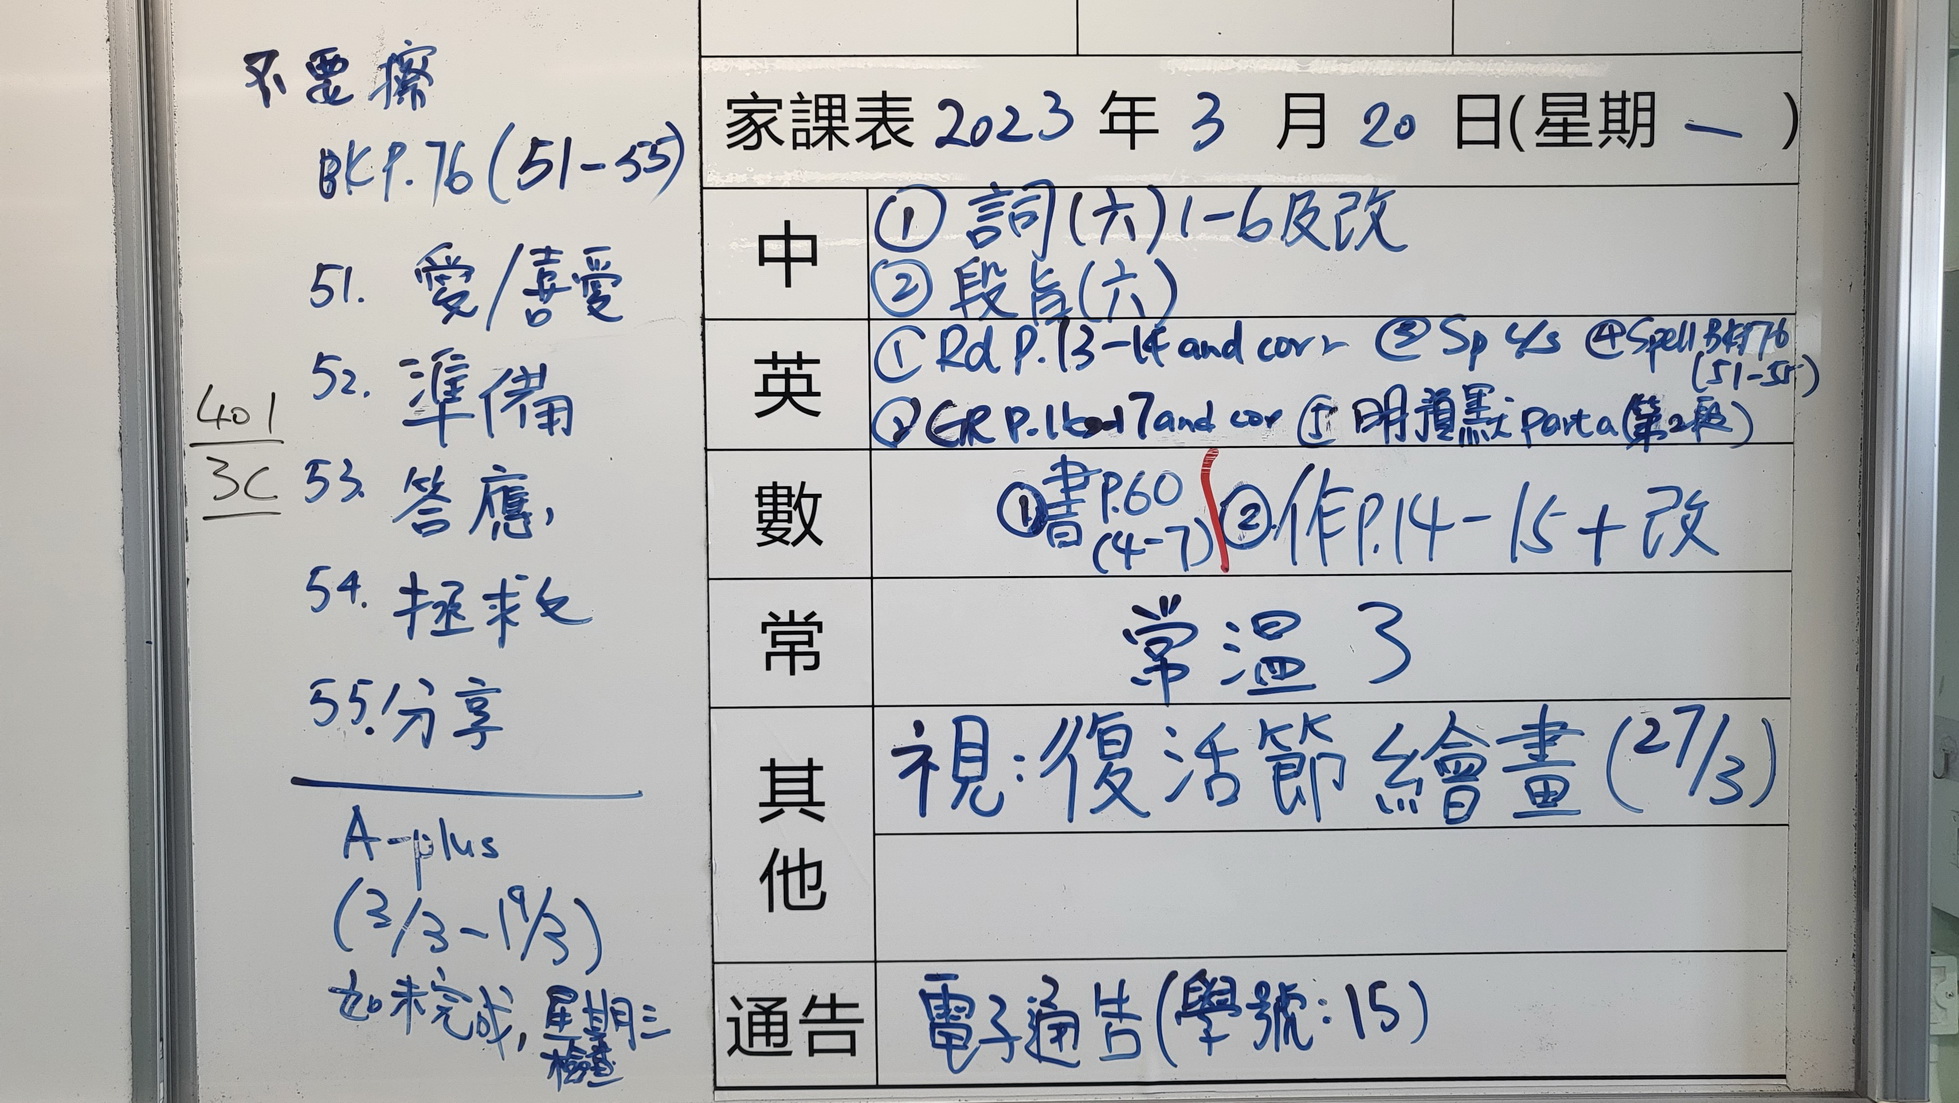 不要擦
BK P.76 (51-55)
51. 愛/喜愛
52. 準備
53. 答應,
54. 拯救
55. 分享
401
3C
A-plus
(3/3-19/3)
如未完成, 星期三
檢查
家課表 2023 年 3 月 20 日(星期 一 )
中
① 詞(六) 1-6及改
② 段旨(六)
英
① Rd P.13-14 and corr ③ Sp c/s ④ Spell BK P76
(51-55)
② GR P.16-17 and cor ⑤ 明預默 part a (第2段)
數
① 書P.60 ② 作P.14-15+改
(4-7)
常
常溫 3
其他
視:復活節繪畫(27/3)
通告
電子通告(學號:15)